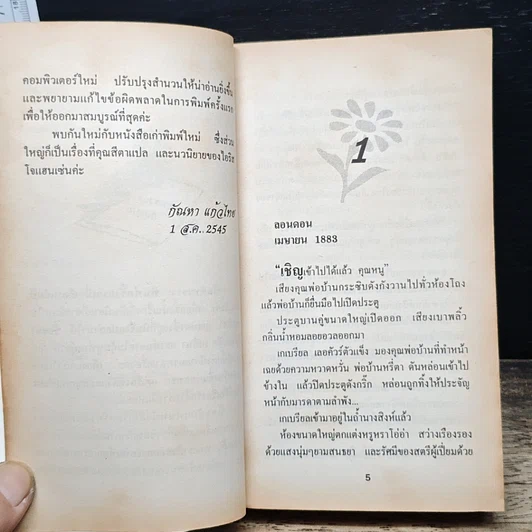 คอมพิวเตอร์ใหม่ ปรับปรุงสำนวนให้น่าอ่านยิ่งขึ้น
และพยายามแก้ไขข้อผิดพลาดในการพิมพ์ครั้งแรก
เพื่อให้ออกมาสมบูรณ์ที่สุดค่ะ
พบกันใหม่กับหนังสือเก่าพิมพ์ใหม่ ซึ่งส่วน
ใหญ่ก็เป็นเรื่องที่คุณสีตาแปล และนวนิยายของไอริส
โจแฮนเซ่นค่ะ
กัณหา แก้วไทย
1 ส.ค. 2545
1
ลอนดอน
เมษายน 1883
"เชิญเข้าไปได้แล้ว คุณหนู"
เสียงคุณพ่อบ้านกระซิบดังกังวานไปทั่วห้องโถง
แล้วพ่อบ้านก็ยื่นมือไปเปิดประตู
ประตูบานคู่ขนาดใหญ่เปิดออก เสียงเบาพลิ้ว
กลิ่นน้ำหอมลอยอวลออกมา
เกเบรียล เลอคัวร์ตัวแข็ง มองคุณพ่อบ้านที่ทำหน้า
เฉยด้วยความหวาดหวั่น พ่อบ้านหรี่ตา ดันหล่อนเข้าไป
ข้างใน แล้วปิดประตูดังกริ๊ก หล่อนถูกทิ้งให้ประจัญ
หน้ากับมารดาตามลำพัง...
เกเบรียลเข้ามาอยู่ในถ้ำนางสิงห์แล้ว
ห้องขนาดใหญ่ตกแต่งหรูหราโอ่อ่า สว่างเรืองรอง
ด้วยแสงนุ่มๆยามสนธยา และรัศมีของสตรีผู้เปี่ยมด้วย
5